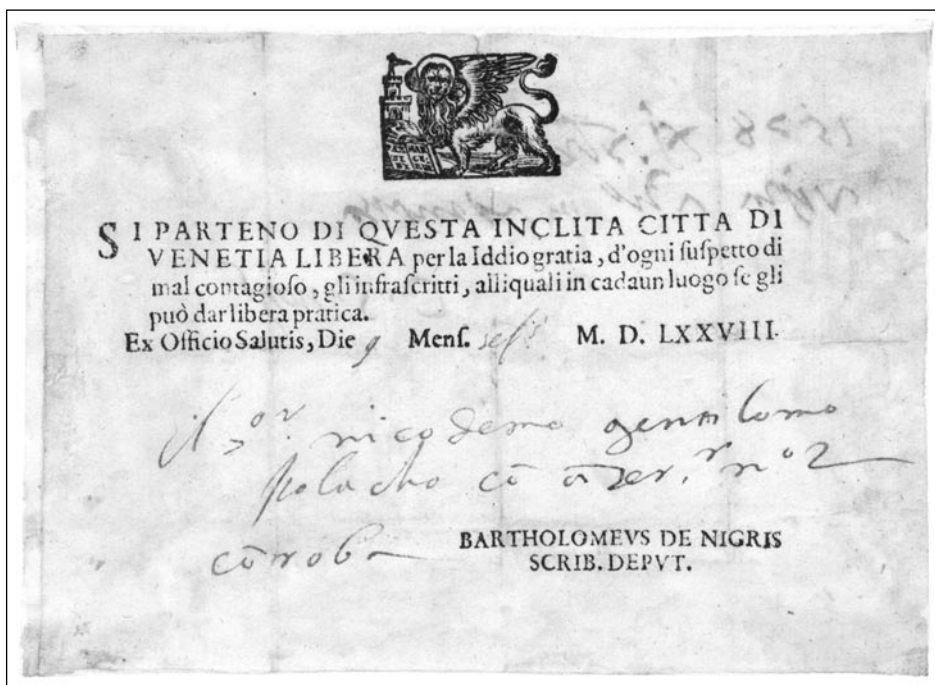 SI PARTENO DI QVESTA INCLITA CITTA DI
VENETIA LIBERA per la Iddio gratia, d'ogni ſuſpetto di
mal contagioſo, gli infraſcritti, alli quali in cadaun luogo ſe gli
può dar libera pratica.
Ex Officio Salutis, Die 9 Menſ. M. D. LXXVIII.
nicodemo gentilomo
polacho cō n° 2
cō roba
BARTHOLOMEVS DE NIGRIS
SCRIB. DEPVT.